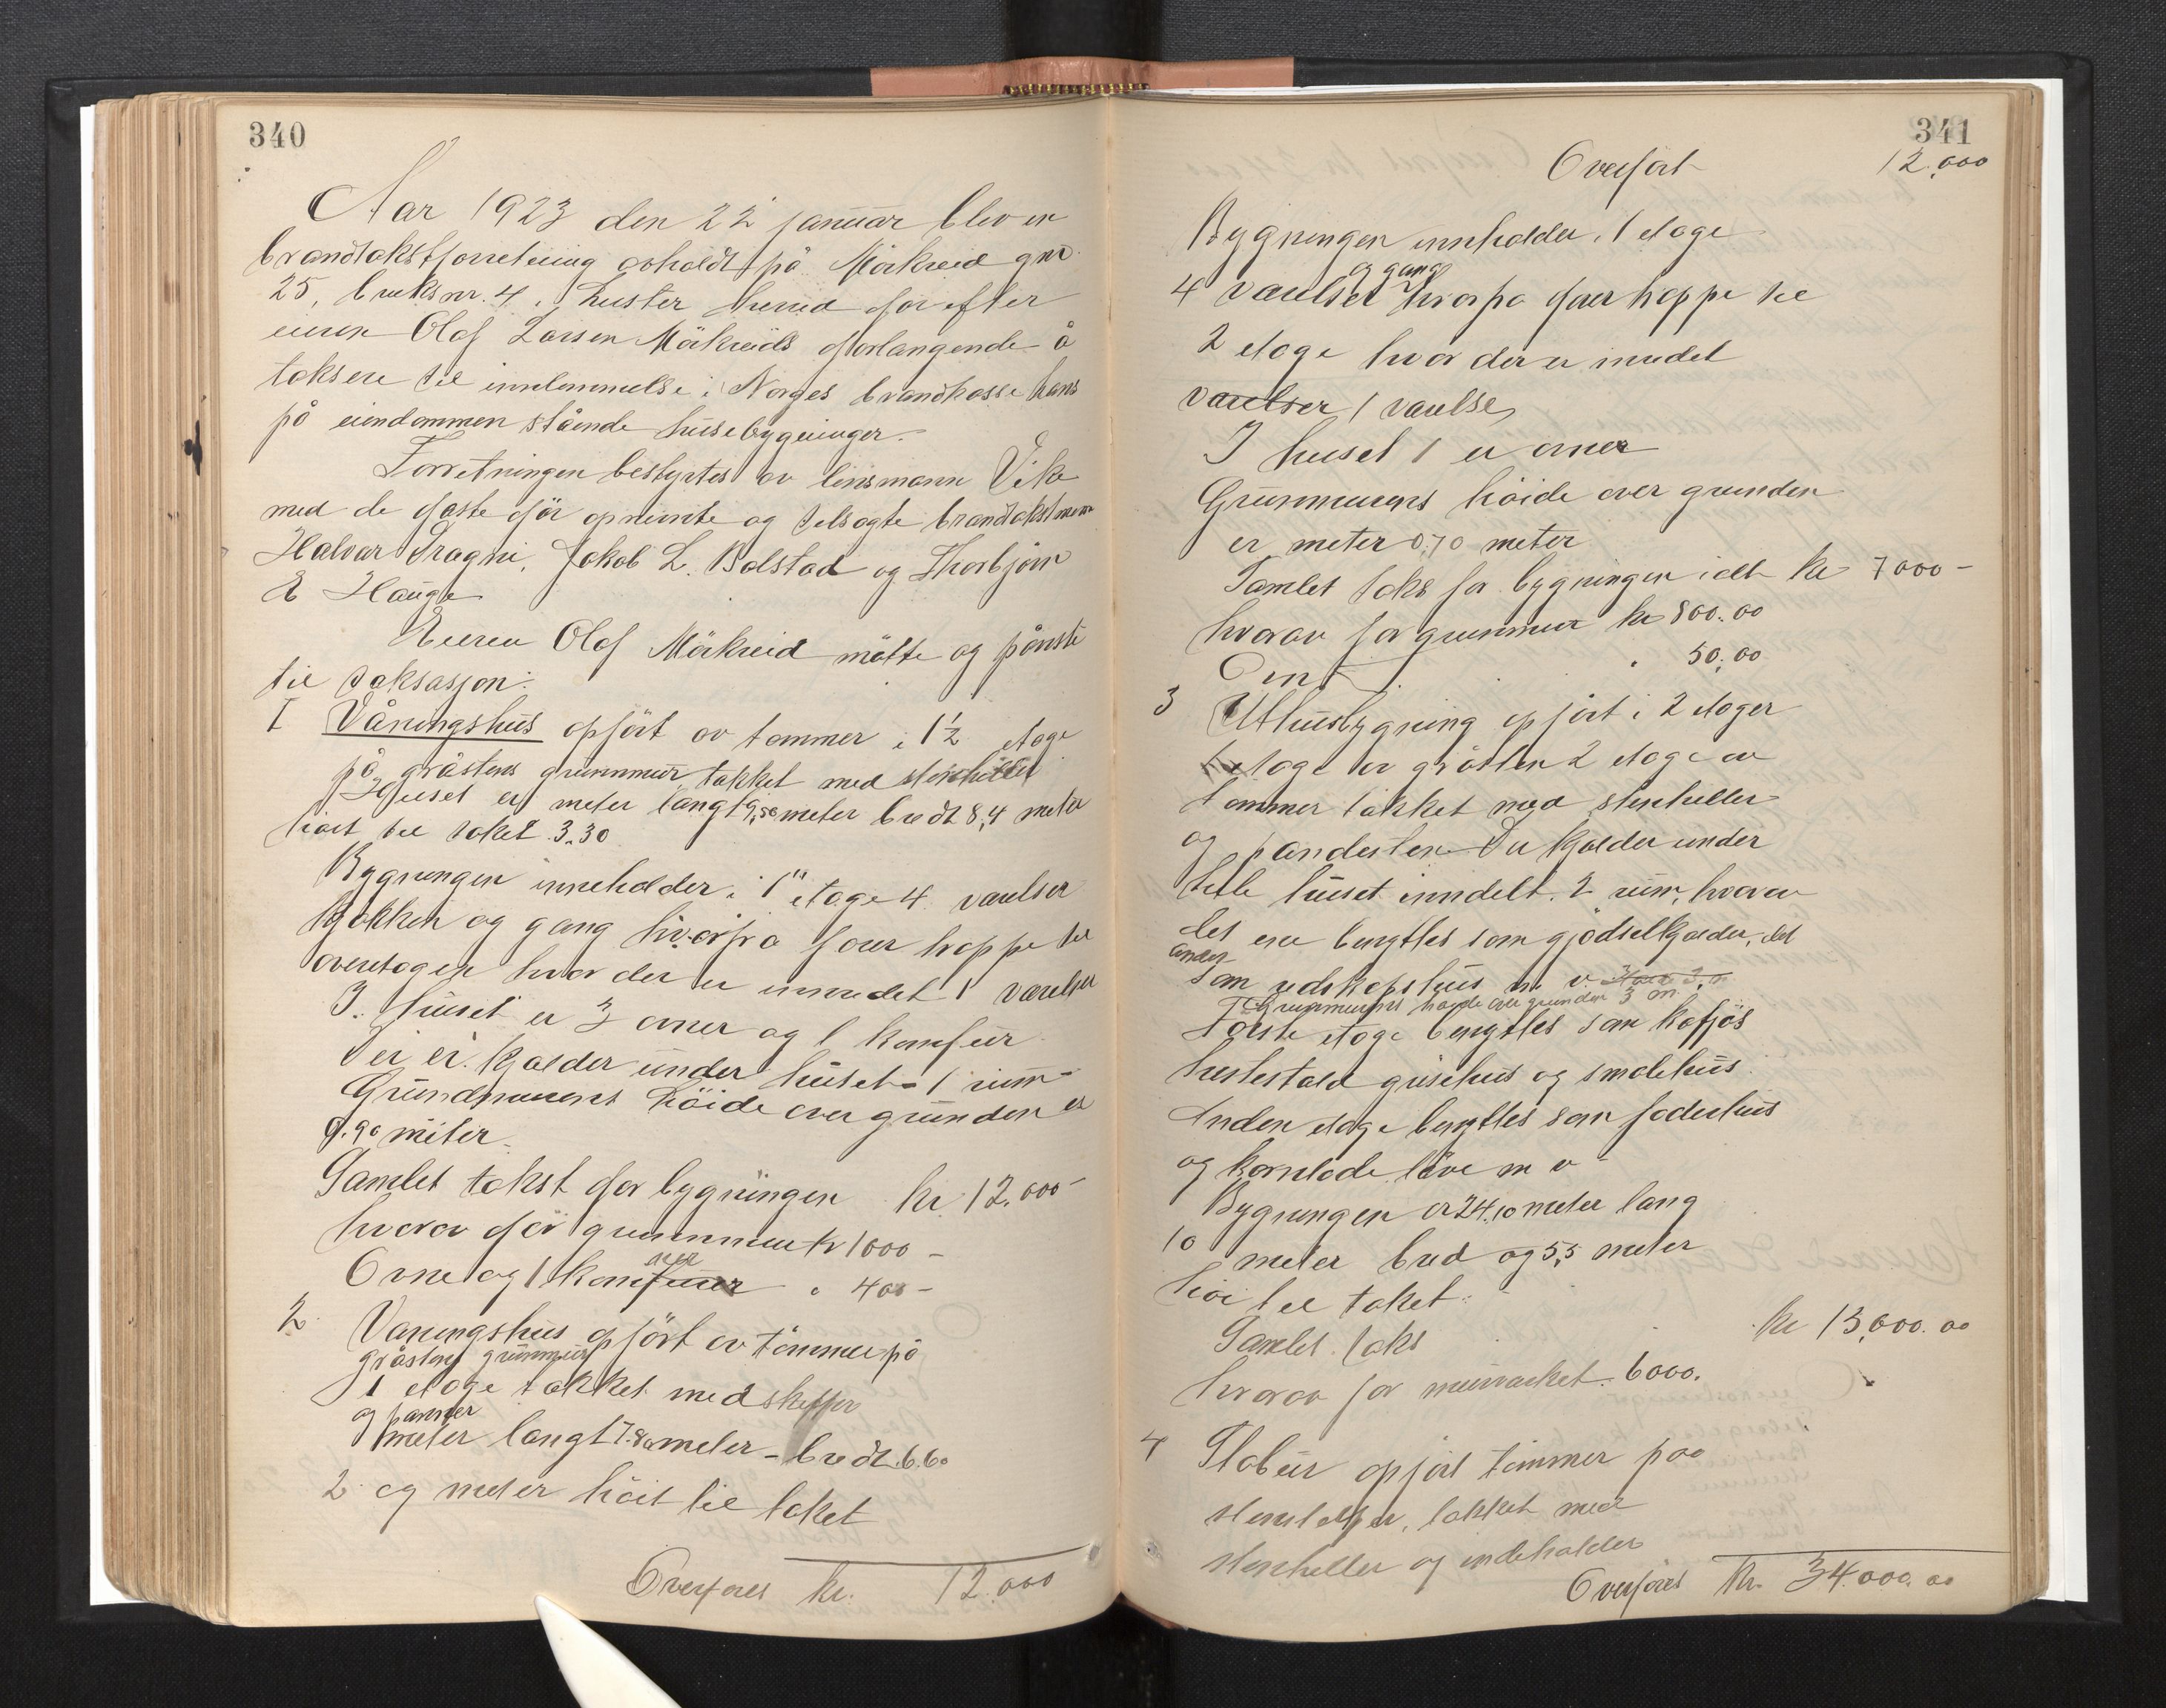 340
Aar 1923 den 22 januar blev en
brandtakstforretning avholdt på Mörkreid gnr.
25, bruksnr. 4 i Luster herred for efter
eieren Olaf Larsen Mörkreids forlangende å
taksere til innlemmelse i Norges brandkasse hans
på eiendommen stående husebygninger.
Forretningen bestyrtes av lensmann Vike
med de faste før opnevnte og brandtakstmenn
Halvar Dragni, Jakob L. Bolstad og Thorbjörn
E Hauge
Eieren Olaf Mörkreid mötte og påviste
til taksasjon:
I Våningshus opfört av tømmer i 1½ etage
på gråstens grunnmur takket med stenheller
Huset er meter langt 9,50 meter bredt 8,4 meter
höit til taket 3.30
Bygningen inneholder i 1" etage 4 værelser
kjøkken og gang hvorfra fører trappe til
overetagen hvor der er innredet 1 værelser
I huset er 3 ovner og 1 komfur
Der er kjælder under huset - 1 rum -
Grundmurens höide over grunden er
0.90 meter
Samlet takst for bygningen kr 12.000 -
hvorav for grunnmur kr 1000 -
Ovne og 1 komfuer " 400 -
2 Våningshus opfört av tömmer på
gråstens grunnmur
1 etage takket med skiffer
og panner
meter langt 7.80 meter - bredt 6.60
2 og meter höit til taket
Overföres kr. 12.000
341
Overfört 12.000
Bygningen inneholder i 1 etage
og gang
4 værelser hvorfra fører trappe til
2 etage hvor der er innredet
værelser 1 værelse
I huset 1 er ovner
Grunnmurens höide over grunden
er meter 0,70 meter
Samlet takst for bygningen idt kr 7000 -
hvorav for grunnmur kr 800.00
Omn " 50.00
3 Uthusbygning opfört i 2 etager
1 etage av gråsten 2 etage av
tømmer takket med stenheller
og pandesten Der kjælder under
hele huset inndelt i 2 rum, hvorav
det ene benyttes som gjödselkjælder, det
andet
som redskapshus m v.
Grunnmurens höide over grunden 3 m.
Förste etage benyttes som kofjös
hestestald grisehus og smalehus
Anden etage benyttes som foderhus
og kornlade löve m v -
Bygningen er 24,10 meter lang
10 meter bred og 5,5 meter
höi til taket:
Samlet takst kr 15,000.00
hvorav for murverket 6000.
4 Stabur opfört tömmer paa
stenstolper, takket med
stenheller og indeholder
Overföres Kr. 34.000.00